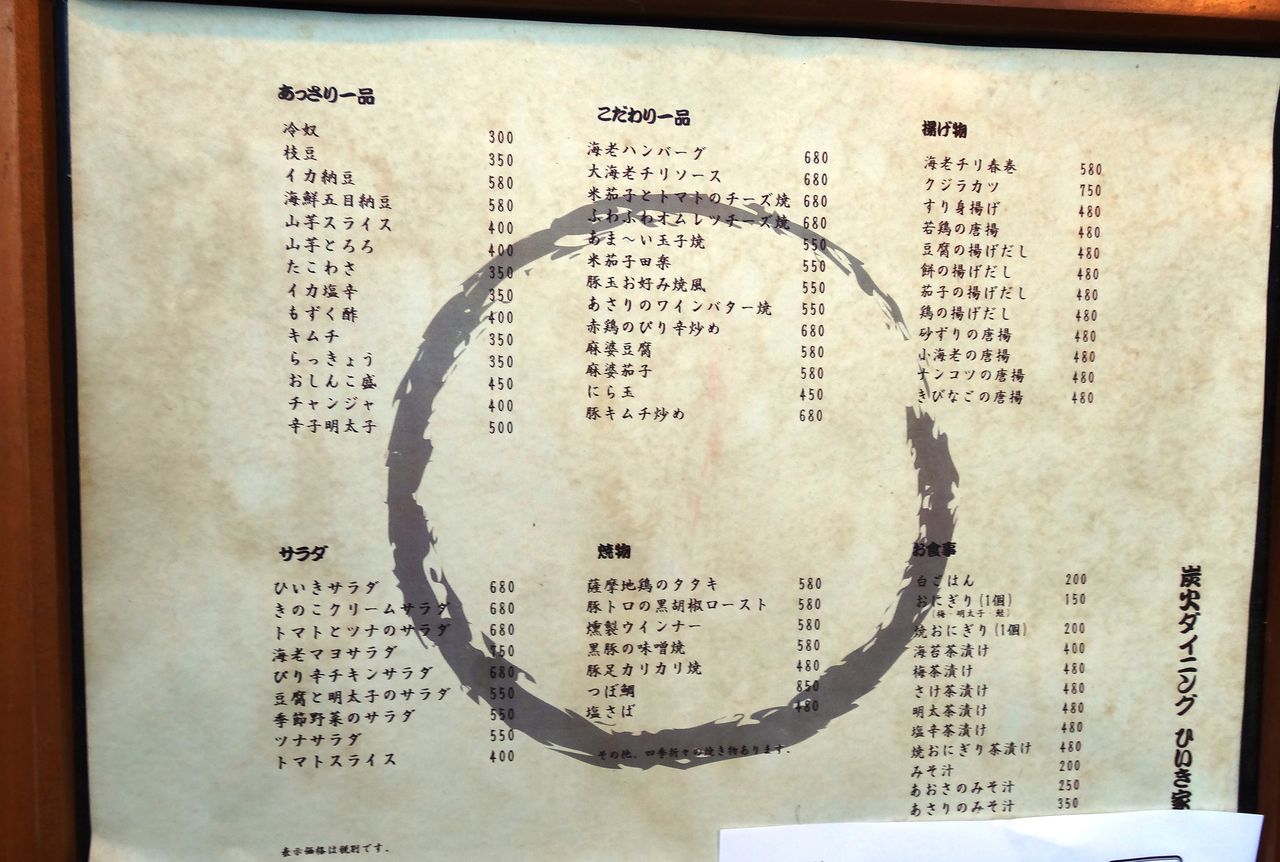 あっさり一品
冷奴 300
枝豆 350
イカ納豆 580
海鮮五目納豆 580
山芋スライス 400
山芋とろろ 400
たこわさ 350
イカ塩辛 350
もずく酢 400
キムチ 350
らっきょう 350
おしんこ盛 450
チャンジャ 400
辛子明太子 500
こだわり一品
海老ハンバーグ 680
大海老チリソース 680
米茄子とトマトのチーズ焼 680
ふわふわオムレツチーズ焼 680
あま〜い玉子焼 550
米茄子田楽 550
豚玉お好み焼風 550
あさりのワインバター焼 550
赤鶏のぴり辛炒め 680
麻婆豆腐 580
麻婆茄子 580
にら玉 450
豚キムチ炒め 680
揚げ物
海老チリ春巻 580
クジラカツ 750
すり身揚げ 480
若鶏の唐揚 480
豆腐の揚げだし 480
餅の揚げだし 480
茄子の揚げだし 480
鶏の揚げだし 480
砂ずりの唐揚 480
小海老の唐揚 480
ナンコツの唐揚 480
きびなごの唐揚 480
サラダ
ひいきサラダ 680
きのこクリームサラダ 680
トマトとツナのサラダ 680
海老マヨサラダ 750
ぴり辛チキンサラダ 680
豆腐と明太子のサラダ 550
季節野菜のサラダ 550
ツナサラダ 550
トマトスライス 400
焼物
薩摩地鶏のタタキ 580
豚トロの黒胡椒ロースト 580
燻製ウインナー 580
黒豚の味噌焼 580
豚足カリカリ焼 480
つぼ鯛 850
塩さば 480
その他、四季折々の焼き物あります。
お食事
白ごはん 200
おにぎり(1個) 150
(梅・明太子・鮭)
焼おにぎり(1個) 200
海苔茶漬け 400
梅茶漬け 480
さけ茶漬け 480
明太茶漬け 480
塩辛茶漬け 480
焼おにぎり茶漬け 480
みそ汁 200
あおさのみそ汁 250
あさりのみそ汁 350
炭火ダイニング ひいき家
表示価格は税別です。